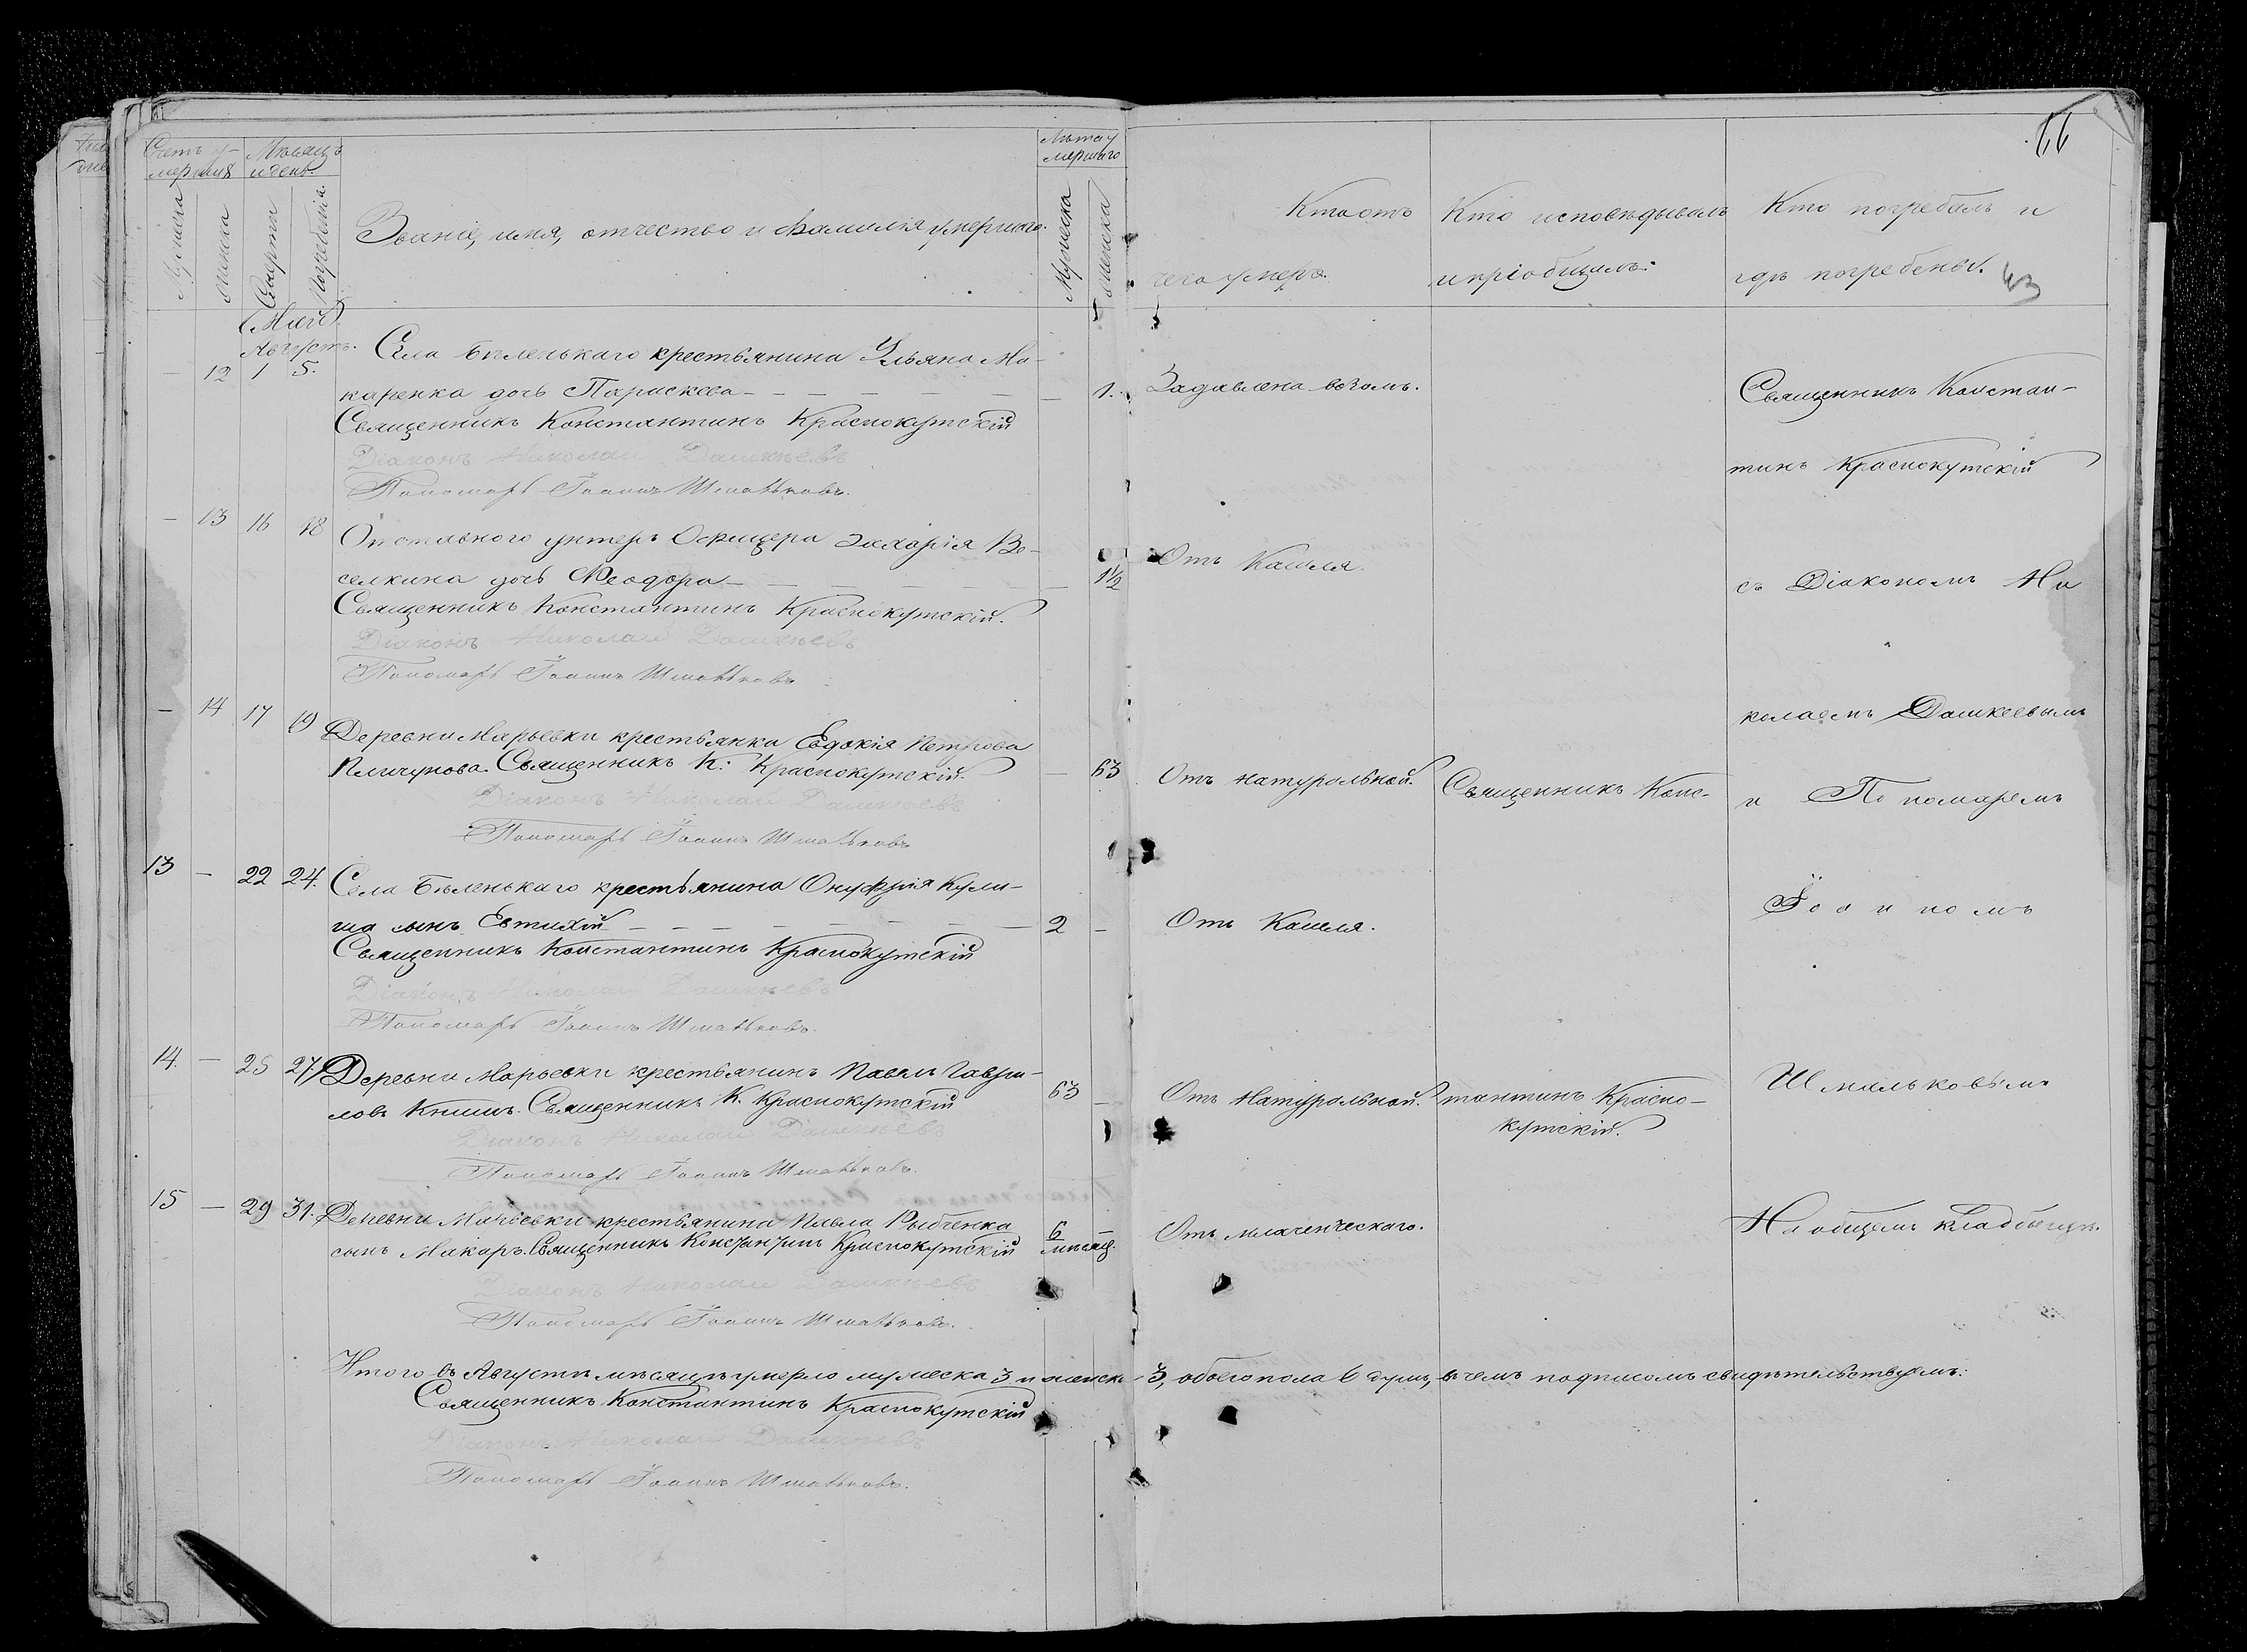 66
43
Счетъ у-
мершихъ
Мѣсяцъ
и день.
Мужеска
Женска
Смерти
Погребенія.
Званіе, имя, отчество и фамилія умершаго.
Лѣта у
мершаго
Мужеска
Женска
Кто отъ
чего умеръ.
Кто исповѣдывалъ
и пріобщилъ.
Кто погребалъ и
гдѣ погребены.
Августъ.
— 12 1 5. Села Бѣленькаго крестьянина Ульяна Ма-
каренка дочь Параскева — 1. Задавлена возомъ.
Священникъ Константинъ Краснокутскій
Діаконъ Николай Дашкѣевъ
Пономарь Іоаннъ Шмальковъ.
— 13 16 18 Отставного унтеръ Офицера Захарія Ве-
селкина дочь Феодора — 1½ Отъ Кашля.
Священникъ Константинъ Краснокутскій.
Діаконъ Николай Дашкѣевъ
Пономарь Іоаннъ Шмальковъ
— 14 17 19 Деревни Марьевки крестьянка Евдокія Петрова
Священникъ К. Краснокутскій. — 63 Отъ натуральной.
Діаконъ Николай Дашкѣевъ
Пономарь Іоаннъ Шмальковъ
13 — 22 24. Села Бѣленькаго крестьянина Онуфрія Кули-
ша сынъ Евтихій — 2 — Отъ Кашля.
Священникъ Константинъ Краснокутскій
Діаконъ Николай Дашкѣевъ
Пономарь Іоаннъ Шмальковъ.
14. — 25 27. Деревни Марьевки крестьянинъ Павелъ Гаври-
ловъ Книшъ. Священникъ К. Краснокутскій 63 — Отъ Натуральной.
Діаконъ Николай Дашкѣевъ
Пономарь Іоаннъ Шмальковъ.
15 — 29 31. Деревни Марьевки крестьянина Павла Рыбченка
сынъ Макаръ. Священникъ Константинъ Краснокутскій 6 мѣсяц. — Отъ младенческаго.
Діаконъ Николай Дашкѣевъ
Пономарь Іоаннъ Шмальковъ.
Священникъ Конс-
тантинъ Красно-
кутскій.
Священникъ Констан-
тинъ Краснокутскій
съ Діакономъ Ни
колаемъ Дашкеевымъ
и Пономаремъ
Іоанномъ
Шмальковымъ
На общемъ кладбищѣ.
Итого въ Августѣ мѣсяцѣ умерло мужеска 3 и женска 3, обоего пола 6 душъ, въ чемъ подписомъ свидѣтельствуемъ:
Священникъ Константинъ Краснокутскій
Діаконъ Николай Дашкѣевъ
Пономарь Іоаннъ Шмальковъ.